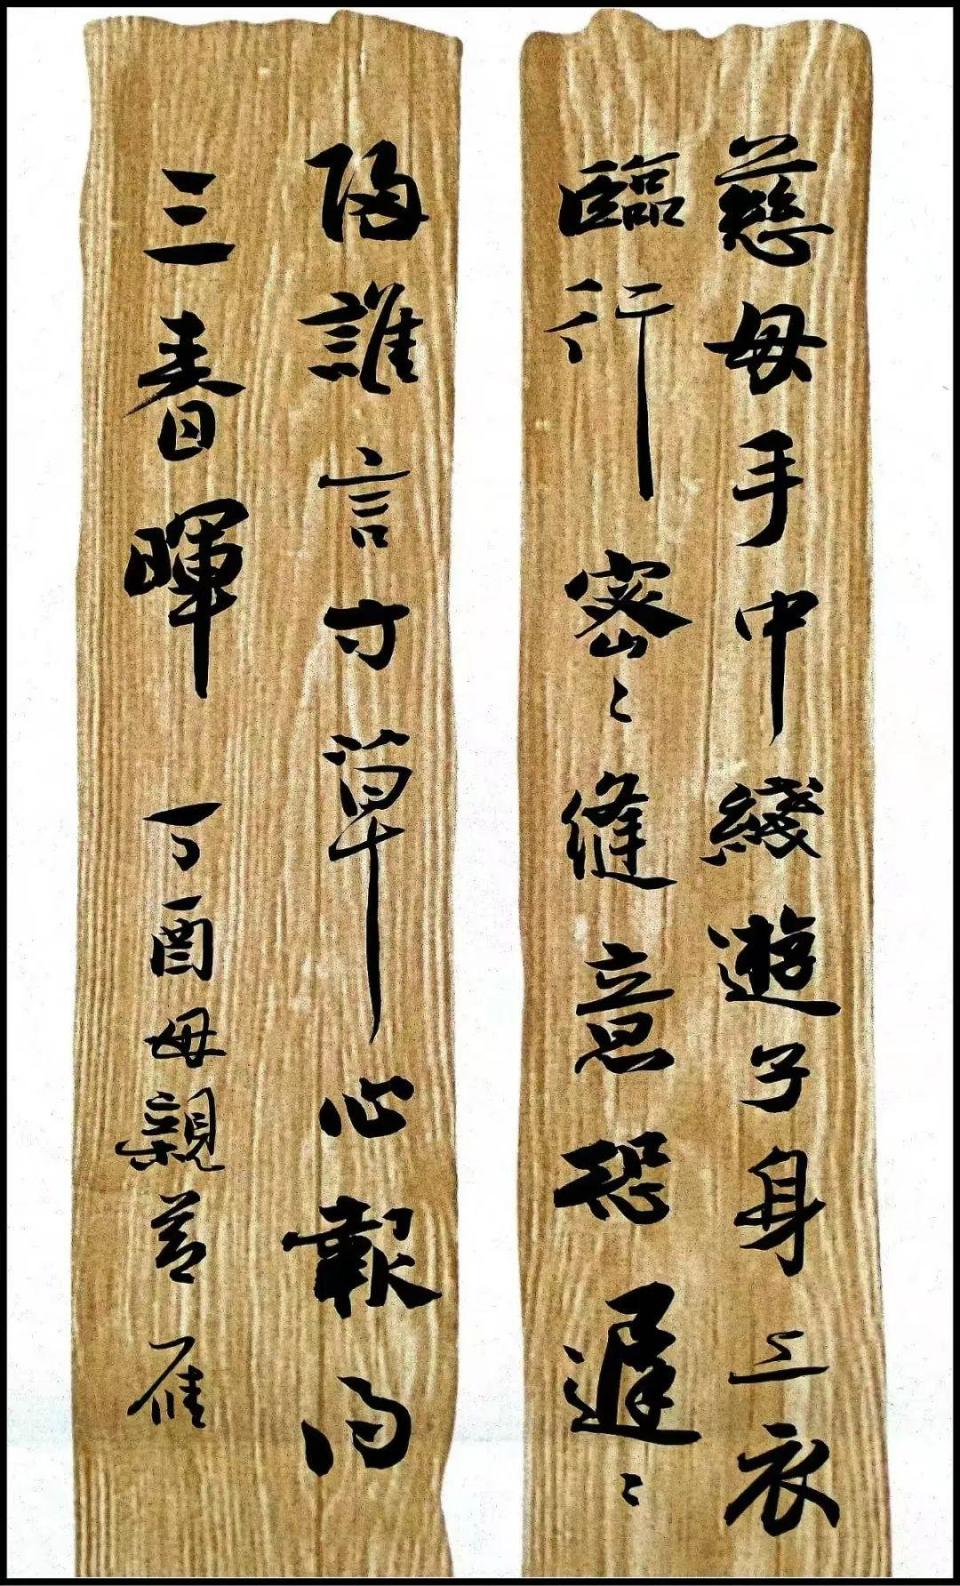 慈母手中綫遊子身上衣
臨行密〻縫意恐遲〻
歸誰言寸草心報得
三春暉 丁酉母親節 雁